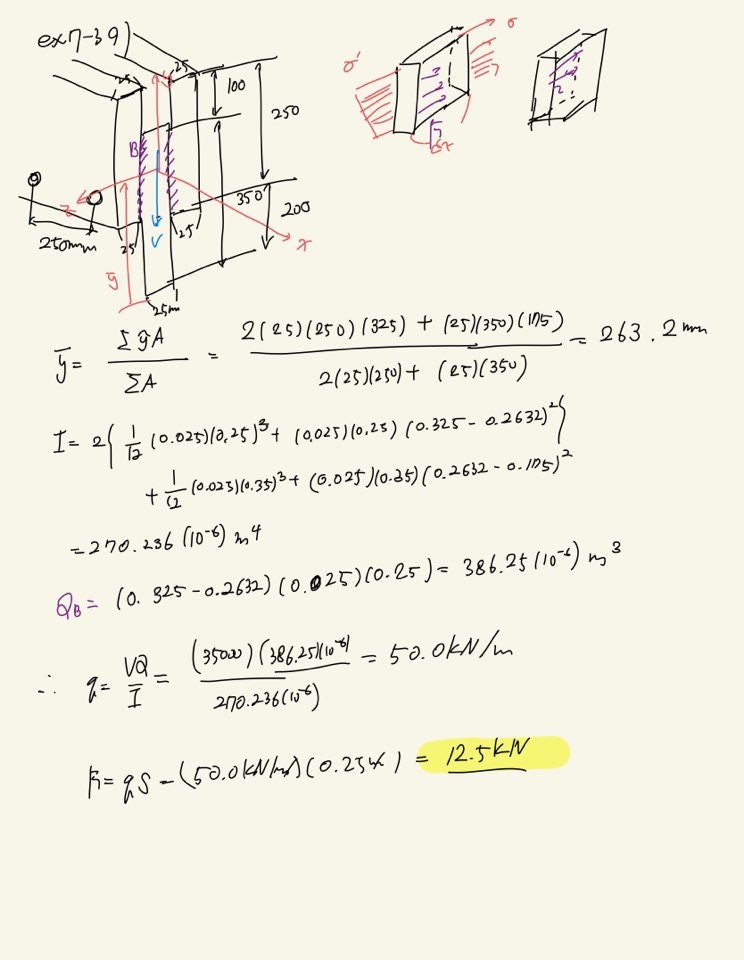 ex7-39)
25
25
100
250
B
y
350
200
z
x
250mm
25
25
V
ȳ
25m
σ'
σ
ȳ = ΣỹA / ΣA = 2(25)(250)(325) + (25)(350)(175) / 2(25)(250) + (25)(350) = 263.2 mm
I = 2{ 1/12 (0.025)(0.25)³ + (0.025)(0.25) (0.325 - 0.2632)² }
+ 1/12 (0.025)(0.35)³ + (0.025)(0.35) (0.2632 - 0.175)²
= 270.236 (10⁻⁶) m⁴
Q_B = (0.325 - 0.2632) (0.025)(0.25) = 386.25 (10⁻⁶) m³
∴ q = VQ / I = (35000) (386.25)(10⁻⁶) / 270.236 (10⁻⁶) = 50.0 kN/m
F = qS = (50.0 kN/m) (0.25m) = 12.5 kN